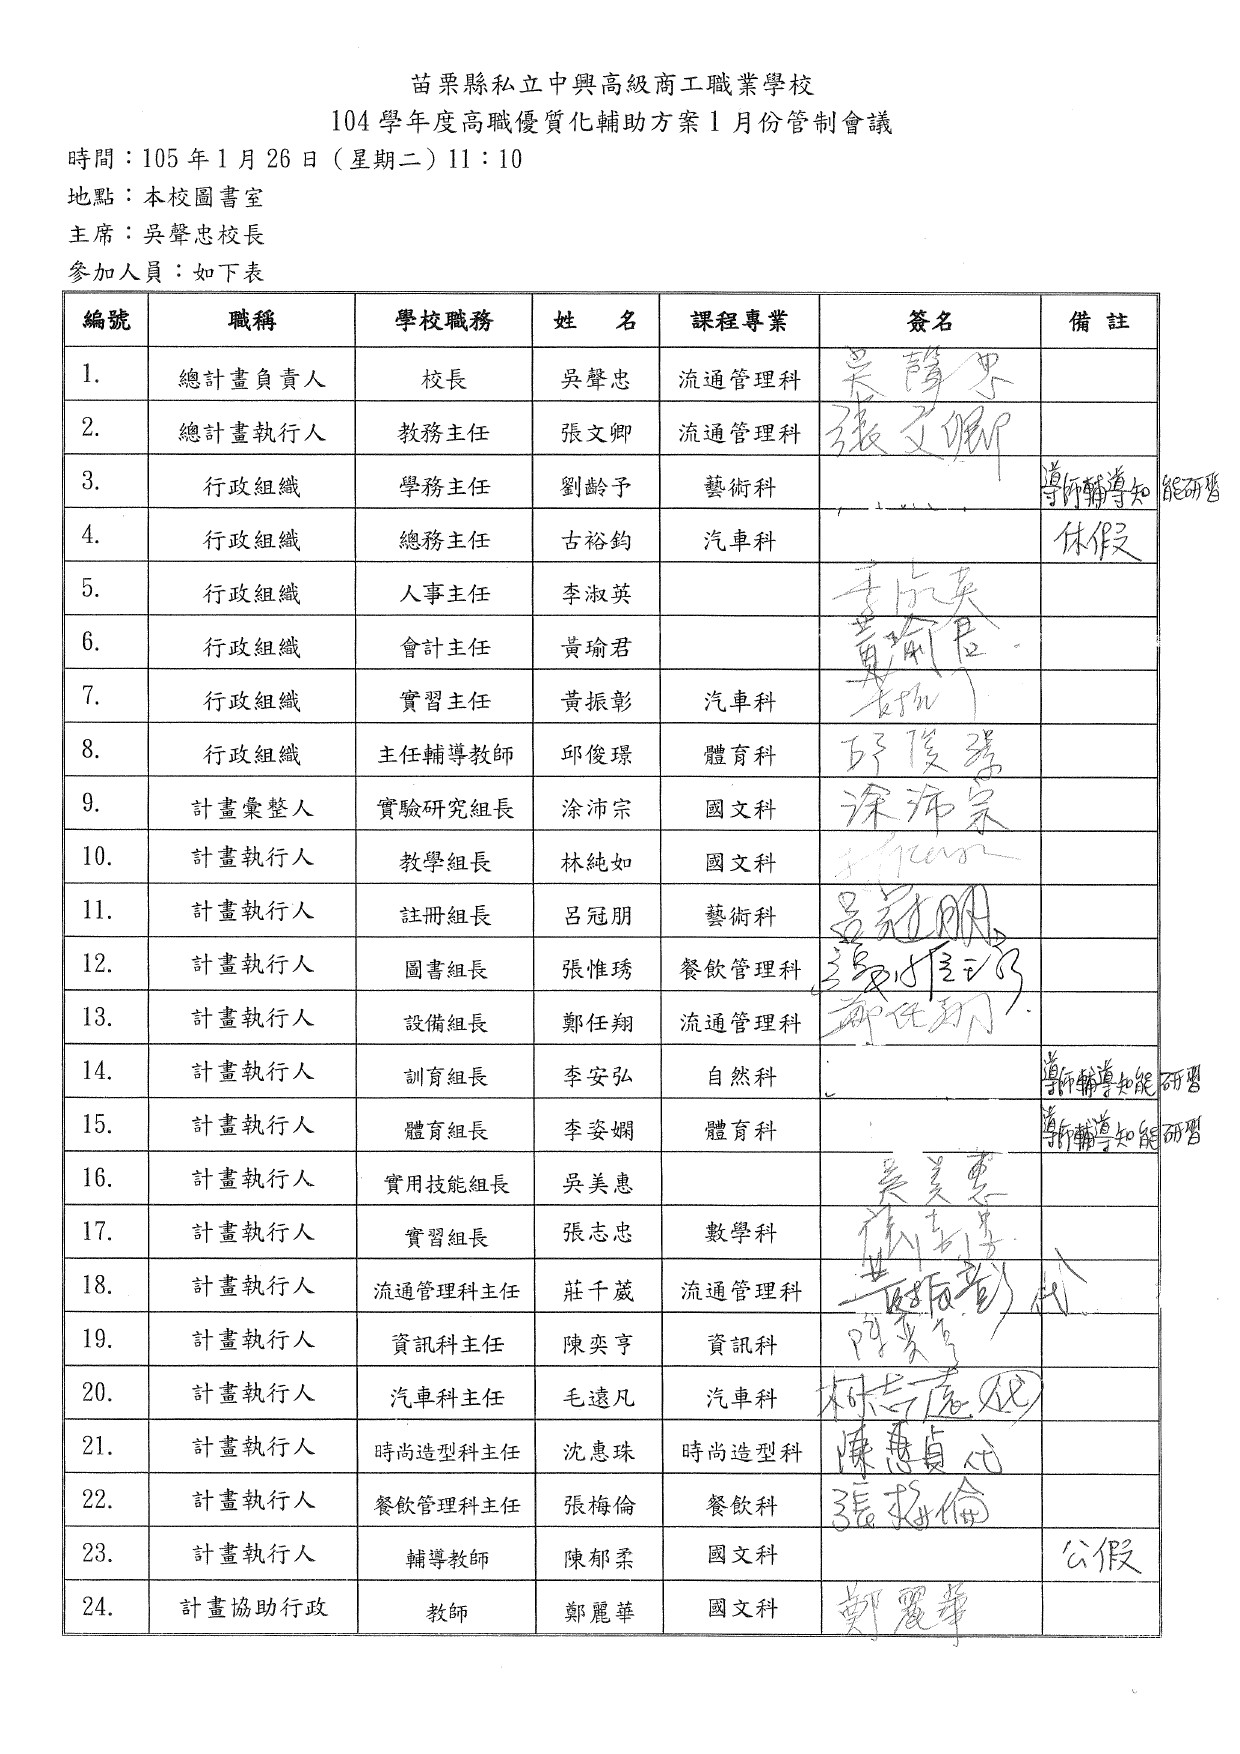 苗栗縣私立中興高級商工職業學校
104學年度高職優質化輔助方案1月份管制會議
時間：105年1月26日（星期二）11：10
地點：本校圖書室
主席：吳聲忠校長
參加人員：如下表
編號 職稱 學校職務 姓 名 課程專業 簽名 備註
1. 總計畫負責人 校長 吳聲忠 流通管理科 吳聲忠
2. 總計畫執行人 教務主任 張文卿 流通管理科 張文卿
3. 行政組織 學務主任 劉齡予 藝術科 導師輔導知能研習
4. 行政組織 總務主任 古裕鈞 汽車科 休假
5. 行政組織 人事主任 李淑英 李淑英
6. 行政組織 會計主任 黃瑜君 黃瑜君
7. 行政組織 實習主任 黃振彰 汽車科
8. 行政組織 主任輔導教師 邱俊璟 體育科 邱俊璟
9. 計畫彙整人 實驗研究組長 涂沛宗 國文科 涂沛宗
10. 計畫執行人 教學組長 林純如 國文科
11. 計畫執行人 註冊組長 呂冠朋 藝術科 呂冠朋
12. 計畫執行人 圖書組長 張惟琇 餐飲管理科
13. 計畫執行人 設備組長 鄭任翔 流通管理科 鄭任翔
14. 計畫執行人 訓育組長 李安弘 自然科 導師輔導知能研習
15. 計畫執行人 體育組長 李姿嫻 體育科 導師輔導知能研習
16. 計畫執行人 實用技能組長 吳美惠 吳美惠
17. 計畫執行人 實習組長 張志忠 數學科 張志忠
18. 計畫執行人 流通管理科主任 莊千葳 流通管理科 黃振彰 代
19. 計畫執行人 資訊科主任 陳奕亨 資訊科 陳奕亨
20. 計畫執行人 汽車科主任 毛遠凡 汽車科 柯志遠 代
21. 計畫執行人 時尚造型科主任 沈惠珠 時尚造型科 陳惠貞 代
22. 計畫執行人 餐飲管理科主任 張梅倫 餐飲科 張梅倫
23. 計畫執行人 輔導教師 陳郁柔 國文科 公假
24. 計畫協助行政 教師 鄭麗華 國文科 鄭麗華